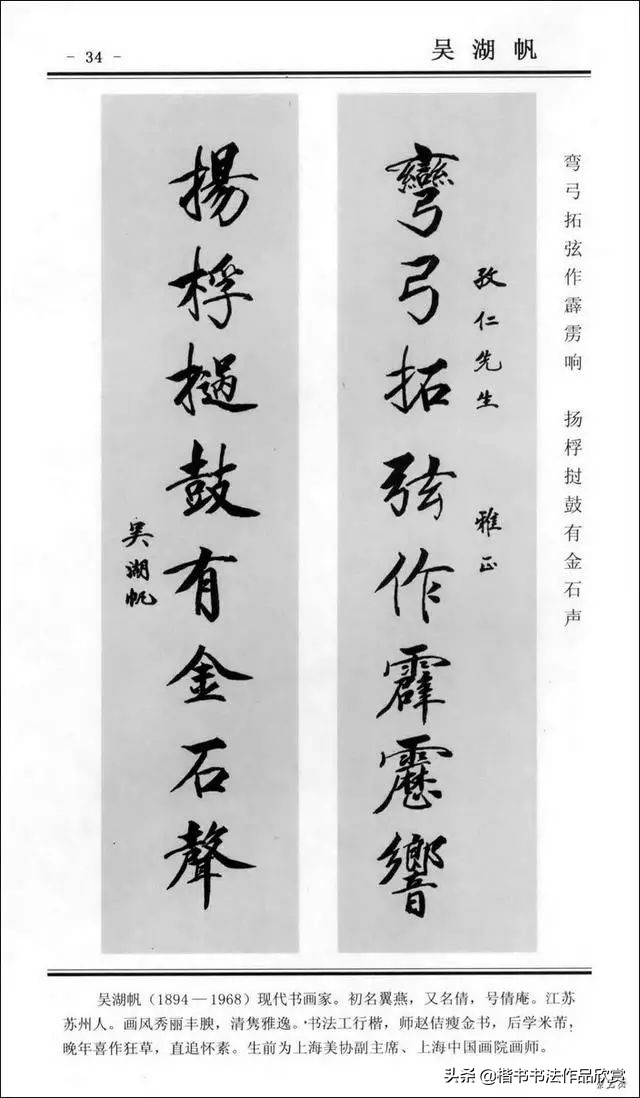 - 34 -
吴湖帆
弯弓拓弦作霹雳响 扬桴挝鼓有金石声
孜仁先生 雅正
彎弓拓弦作霹靂響
揚桴撾鼓有金石聲
吴湖帆
吴湖帆（1894—1968）现代书画家。初名翼燕，又名倩，号倩庵。江苏
苏州人。画风秀丽丰腴，清隽雅逸。·书法工行楷，师赵佶瘦金书，后学米芾，
晚年喜作狂草，直追怀素。生前为上海美协副主席、上海中国画院画师。
头条 @楷书书法作品欣赏